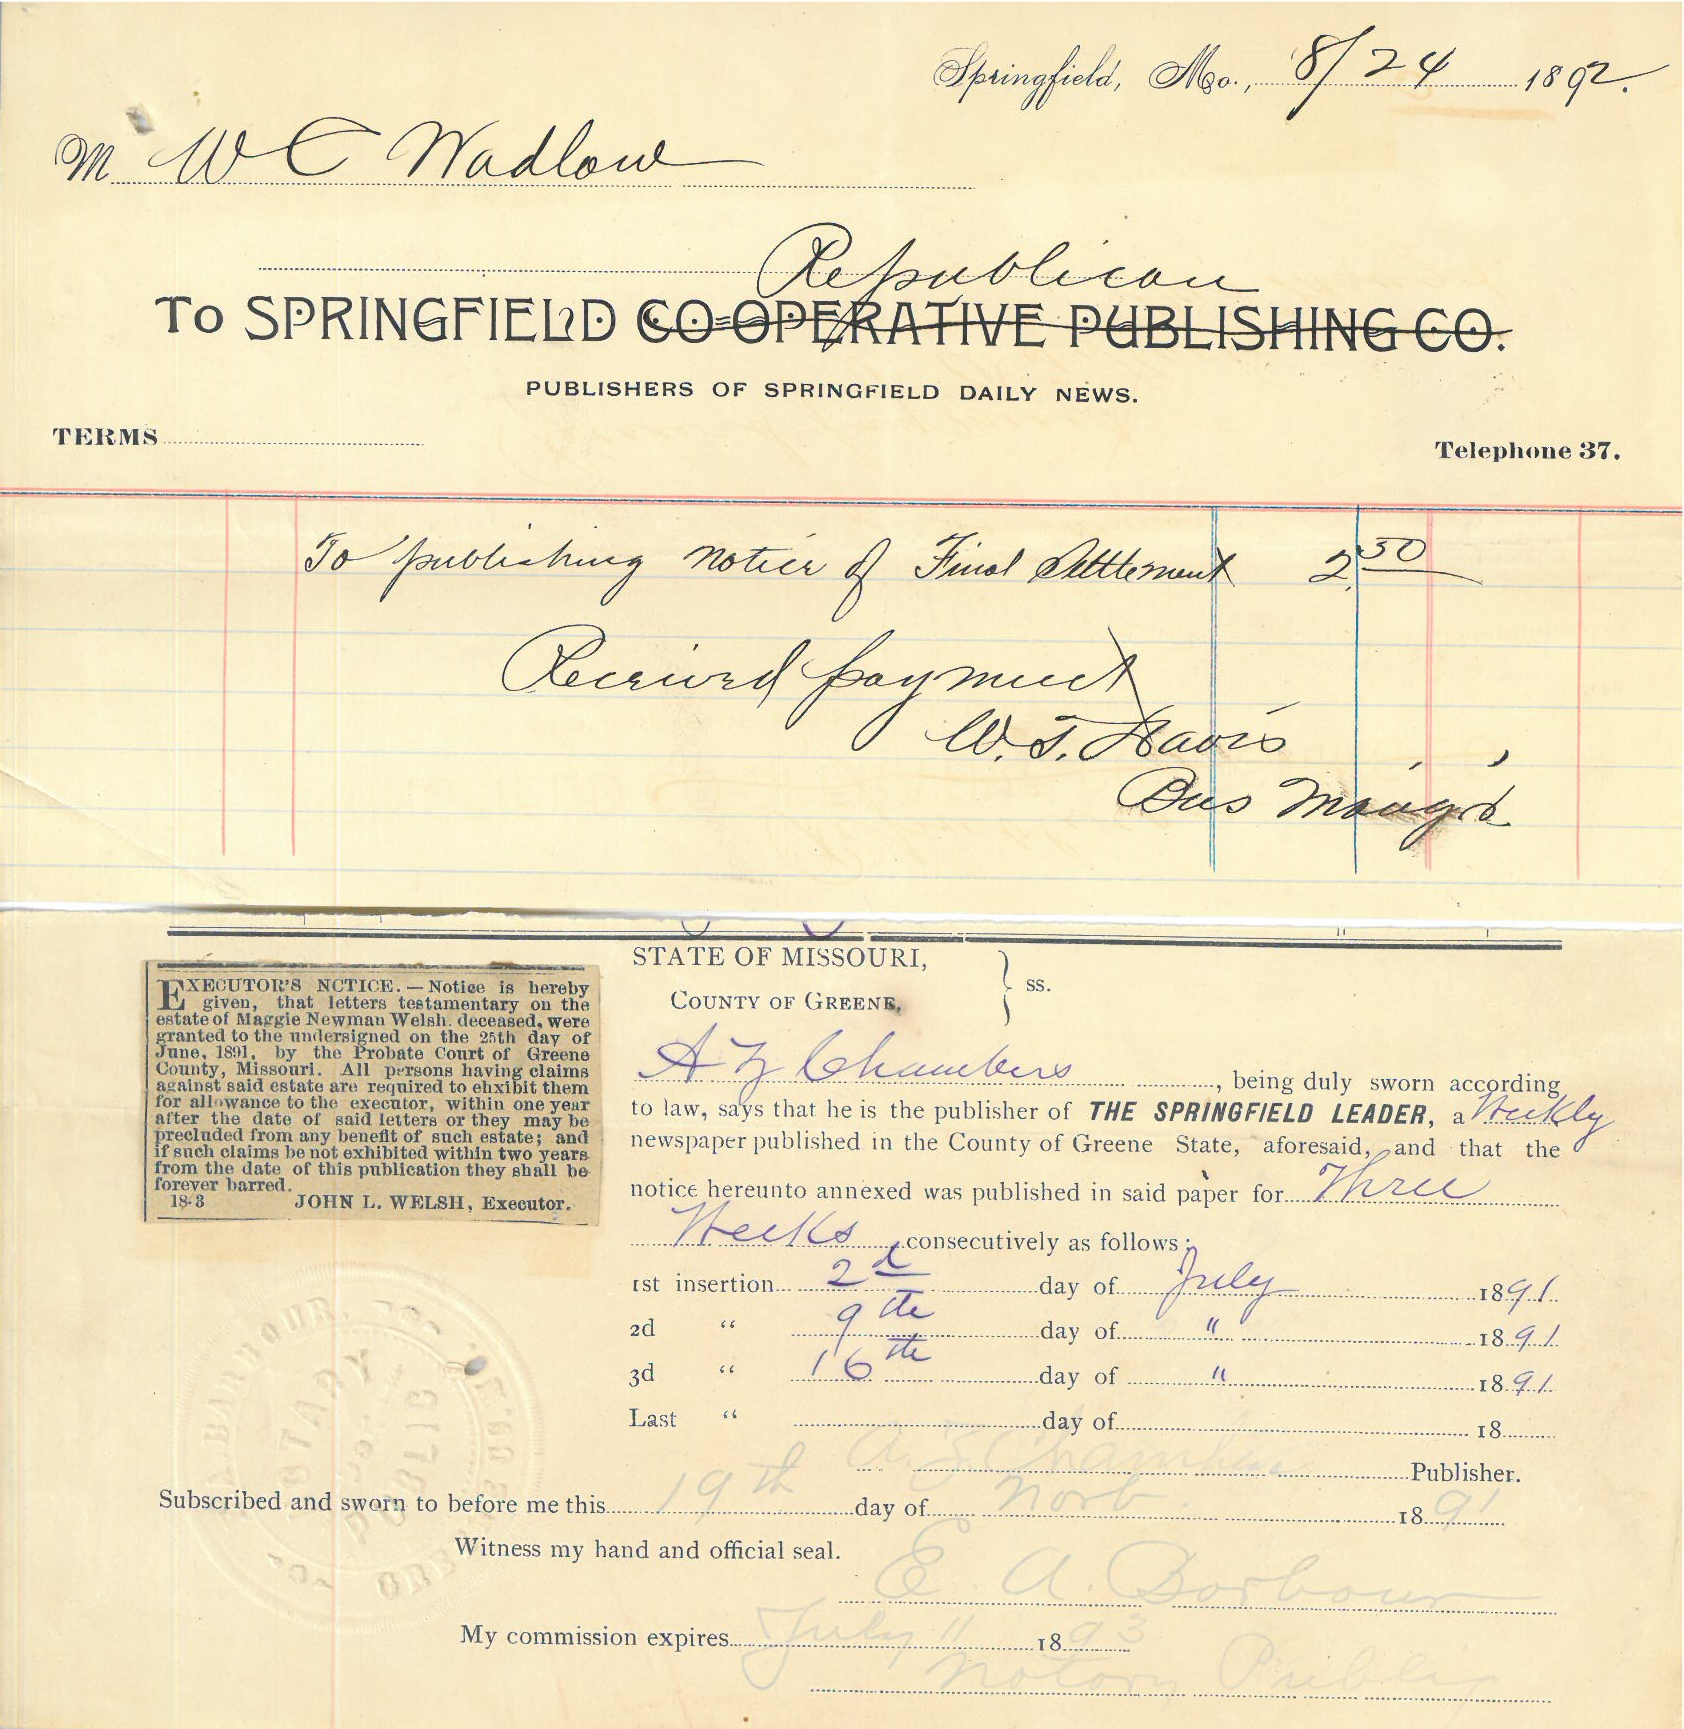 Springfield, Mo., 8/24 1892.
M W C Wadlow
Republican
To SPRINGFIELD CO-OPERATIVE PUBLISHING CO.
PUBLISHERS OF SPRINGFIELD DAILY NEWS.
TERMS
Telephone 37.
To publishing notice of Final Settlement 2.50
Received payment
W. T. Davis
Bus Man'g'r
EXECUTOR'S NOTICE.—Notice is hereby
given, that letters testamentary on the
estate of Maggie Newman Welsh, deceased, were
granted to the undersigned on the 25th day of
June, 1891, by the Probate Court of Greene
County, Missouri. All persons having claims
against said estate are required to ehxibit them
for allowance to the executor, within one year
after the date of said letters or they may be
precluded from any benefit of such estate; and
if such claims be not exhibited within two years
from the date of this publication they shall be
forever barred.
18-3 JOHN L. WELSH, Executor.
STATE OF MISSOURI,
COUNTY OF GREENE, } ss.
A Chambers, being duly sworn according
to law, says that he is the publisher of THE SPRINGFIELD LEADER, a Weekly
newspaper published in the County of Greene State, aforesaid, and that the
notice hereunto annexed was published in said paper for Three
Weeks consecutively as follows:
1st insertion 2d day of July 1891.
2d " 9th day of " 1891.
3d " 16th day of " 1891.
Last " day of 18
A. Chambers Publisher.
Subscribed and sworn to before me this 19th day of 1891
Witness my hand and official seal.
E. A. Barbour
My commission expires July 11 1893
Notary Public
BARBOUR
NOTARY
PUBLIC